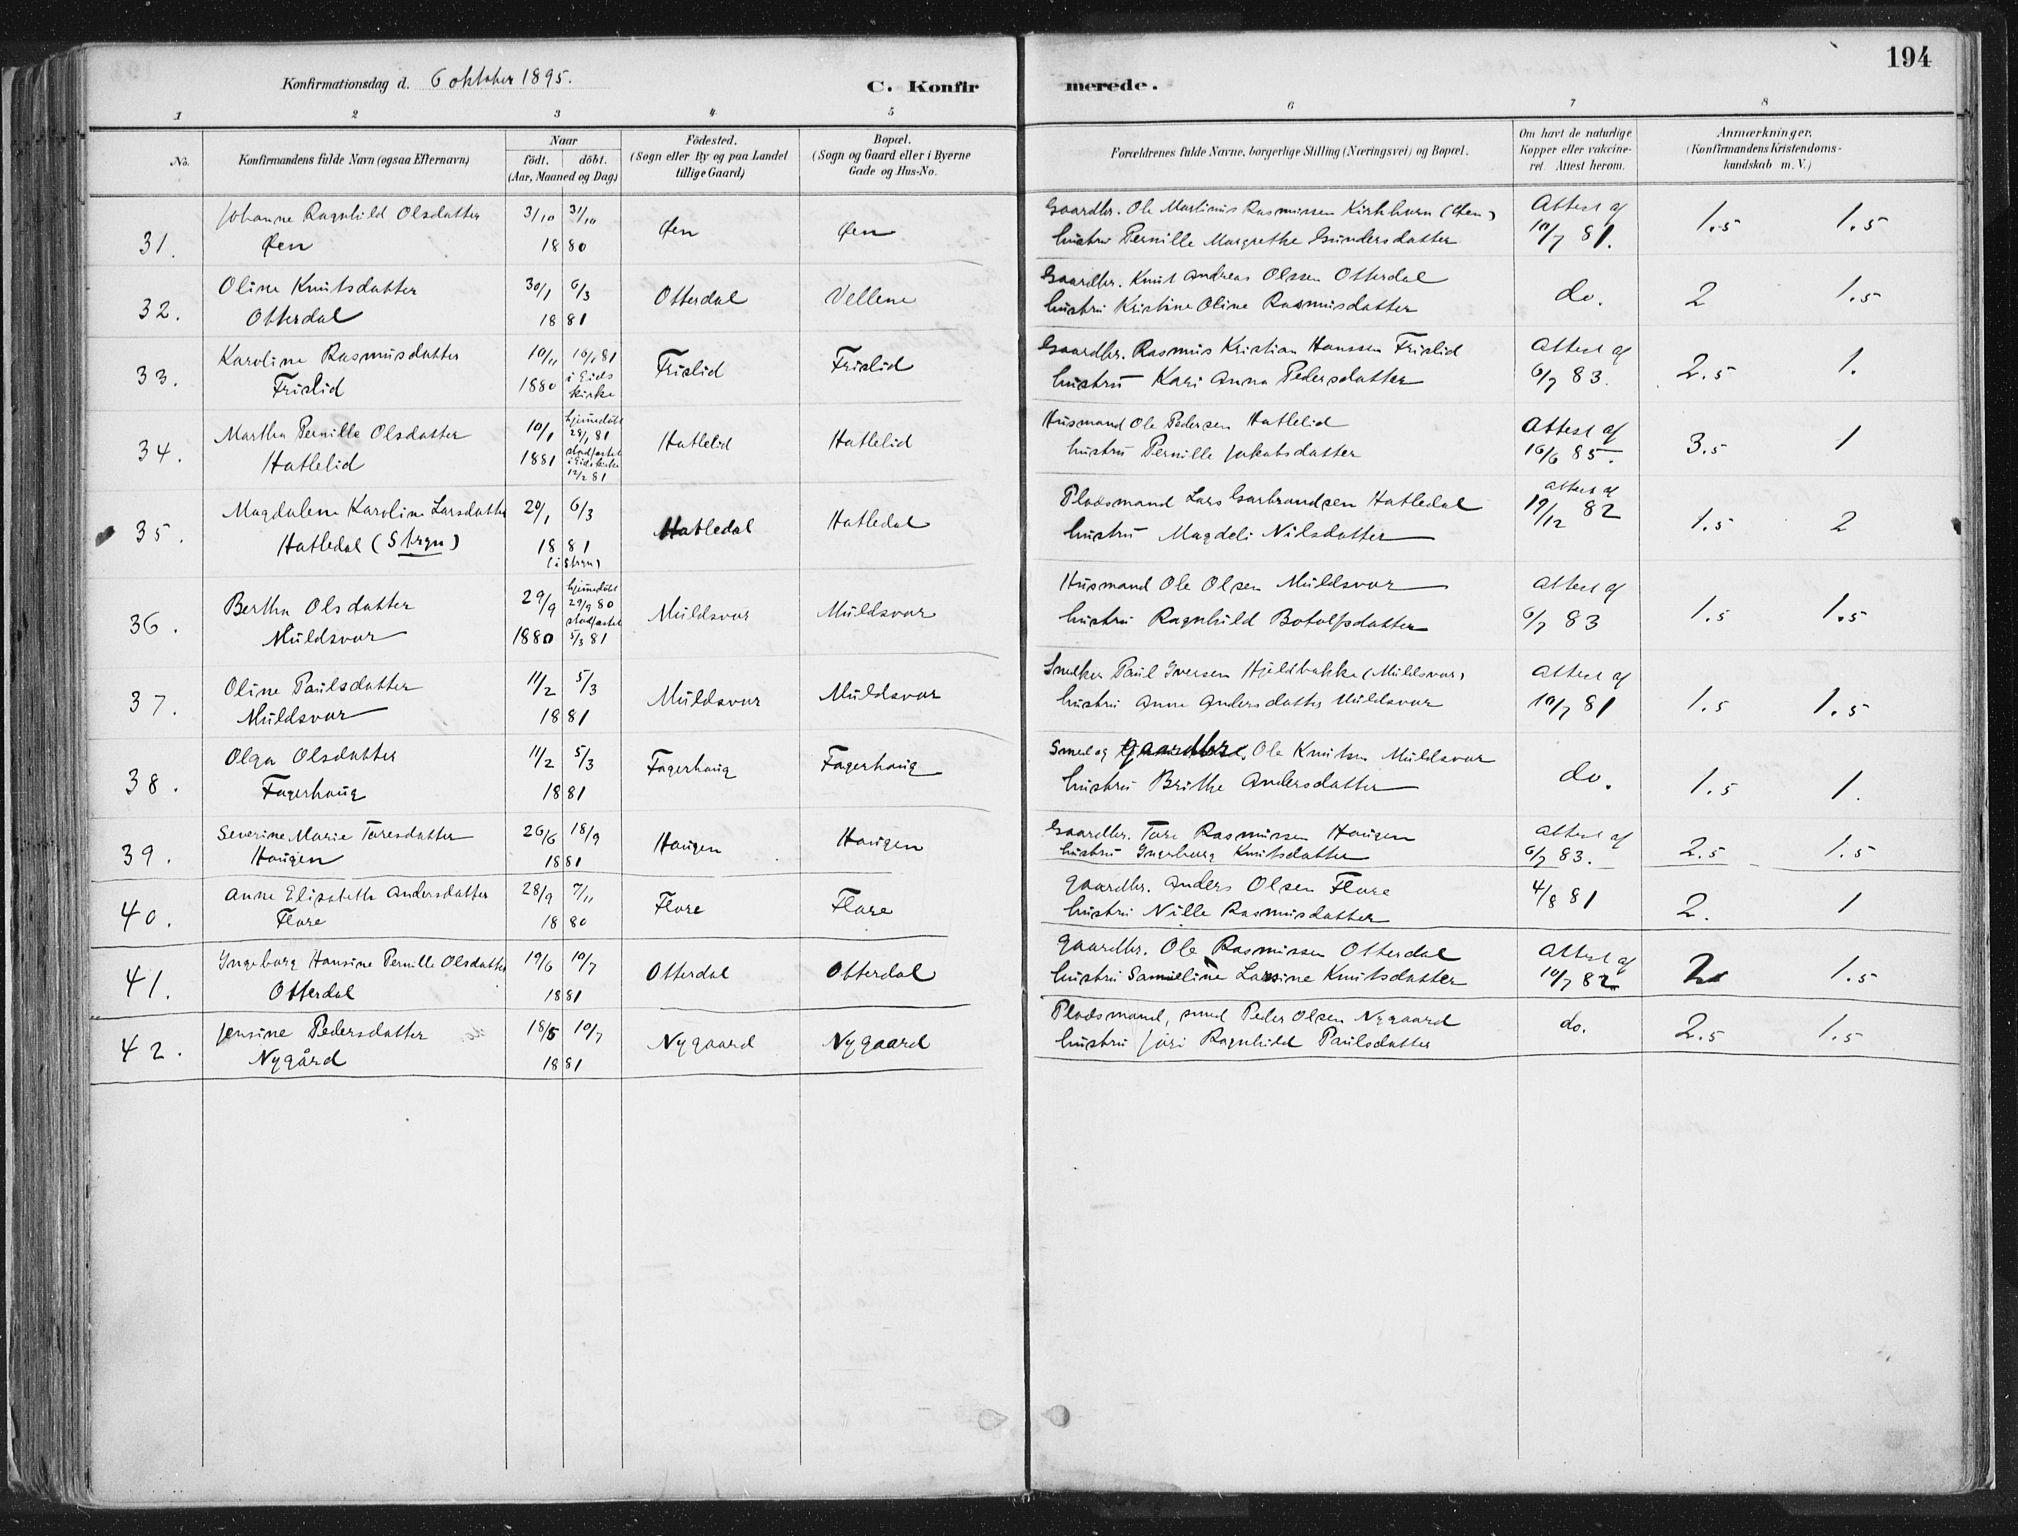 194
Konfirmationsdag d. 6 oktober 1895.
C. Konfirmerede.
1 2 3 4 5 6 7 8
No.
Konfirmandens fulde Navn (ogsaa Efternavn)
Naar
födt. döbt.
(Aar, Maaned og Dag)
Födested.
(Sogn eller By og paa Landet
tillige Gaard)
Bopæl.
(Sogn og Gaard eller i Byerne
Gade og Hus-No.
Forældrenes fulde Navne, borgerlige Stilling (Næringsvei) og Bopæl.
Om havt de naturlige
Kopper eller vakcine-
ret. Attest herom.
Anmærkninger.
(Konfirmandens Kristendoms-
kundskab m. V.)
31. Johanne Ragnhild Olsdatter 3/10 31/10 Øen Øen Gaardbr. Ole Martinus Rasmussen Kirkhorn (Øen) Attest af 1.5 1.5
Øen 18 80 hustru Pernille Margrethe Gundersdatter 10/7 81.
32. Oline Knutsdatter 30/1 6/3 Otterdal Vellene Gaardbr. Knut Andreas Olsen Otterdal do. 2 1.5
Otterdal 18 81 hustru Kristine Oline Rasmusdatter
33. Karoline Rasmusdatter 10/11 16/1 81 Frislid Frislid Gaardbr. Rasmus Kristian Hanssen Frislid Attest af 2.5 1.
Frislid 1880 i Eids kirke hustru Kari Anna Pedersdatter 6/7 83.
34. Martha Pernille Olsdatter 10/1 hjemmedöbt 29/1 81 Hatlelid Hatlelid Husmand Ole Pedersen Hatlelid Attest af 3.5 1
Hatlelid 1881 stadfæstet i Eids kirke 12/2 81 hustru Pernille Jakobsdatter 16/6 85.
35. Magdalene Karoline Larsdatter 20/1 6/3 Hatledal Hatledal Pladsmand Lars Garbrandsen Hatledal attest af 19/12 82 1.5 2
Hatledal (Stryn) 18 81 (i Stryn) hustru Magdeli Nilsdatter
36. Bertha Olsdatter 29/9 hjemmedöbt 29/9 80 Muldsvor Muldsvor Husmand Ole Olsen Muldsvor attest af 1.5 1.5
Muldsvor 1880 stadfæstet 5/3 81 hustru Ragnhild Botolfsdatter 6/7 83
37. Oline Paulsdatter 11/2 5/3 Muldsvor Muldsvor Snelker Paul Iversen Hjeldbakke (Muldsvor) attest af 1.5 1.5
Muldsvor 18 81 hustru Anne Andersdatter Muldsvor 10/7 81
38. Olga Olsdatter 11/2 5/3 Fagerhaug Fagerhaug Smed og gaardbr. Ole Knutsen Muldsvor do. 1.5 1.
Fagerhaug 18 81 hustru Brithe Andersdatter
39. Severine Marie Toresdatter 26/6 18/9 Haugen Haugen Gaardbr. Tore Rasmussen Haugen attest af 2.5 1.5
Haugen 1881 hustru Ingeborg Knutsdatter 6/7 83.
40. Anne Elisabeth Andersdatter 28/9 7/11 Flore Flore gaardbr. Anders Olsen Flore 4/8 81 2. 1
Flore 18 80 hustru Nille Rasmusdatter
41. Ingeborg Hansine Pernille Olsdatter 19/6 10/7 Otterdal Otterdal gaardbr. Ole Rasmussen Otterdal Attest af 2 1.5
Otterdal 1881 hustru Samueline Larsine Knutsdatter 10/7 82
42. Jensine Pedersdatter 18/5 10/7 Nygaard Nygaard Pladsmand, smed Peder Olsen Nygaard do. 2.5 1.5
Nygård 18 81 hustru Jori Ragnhild Paulsdatter